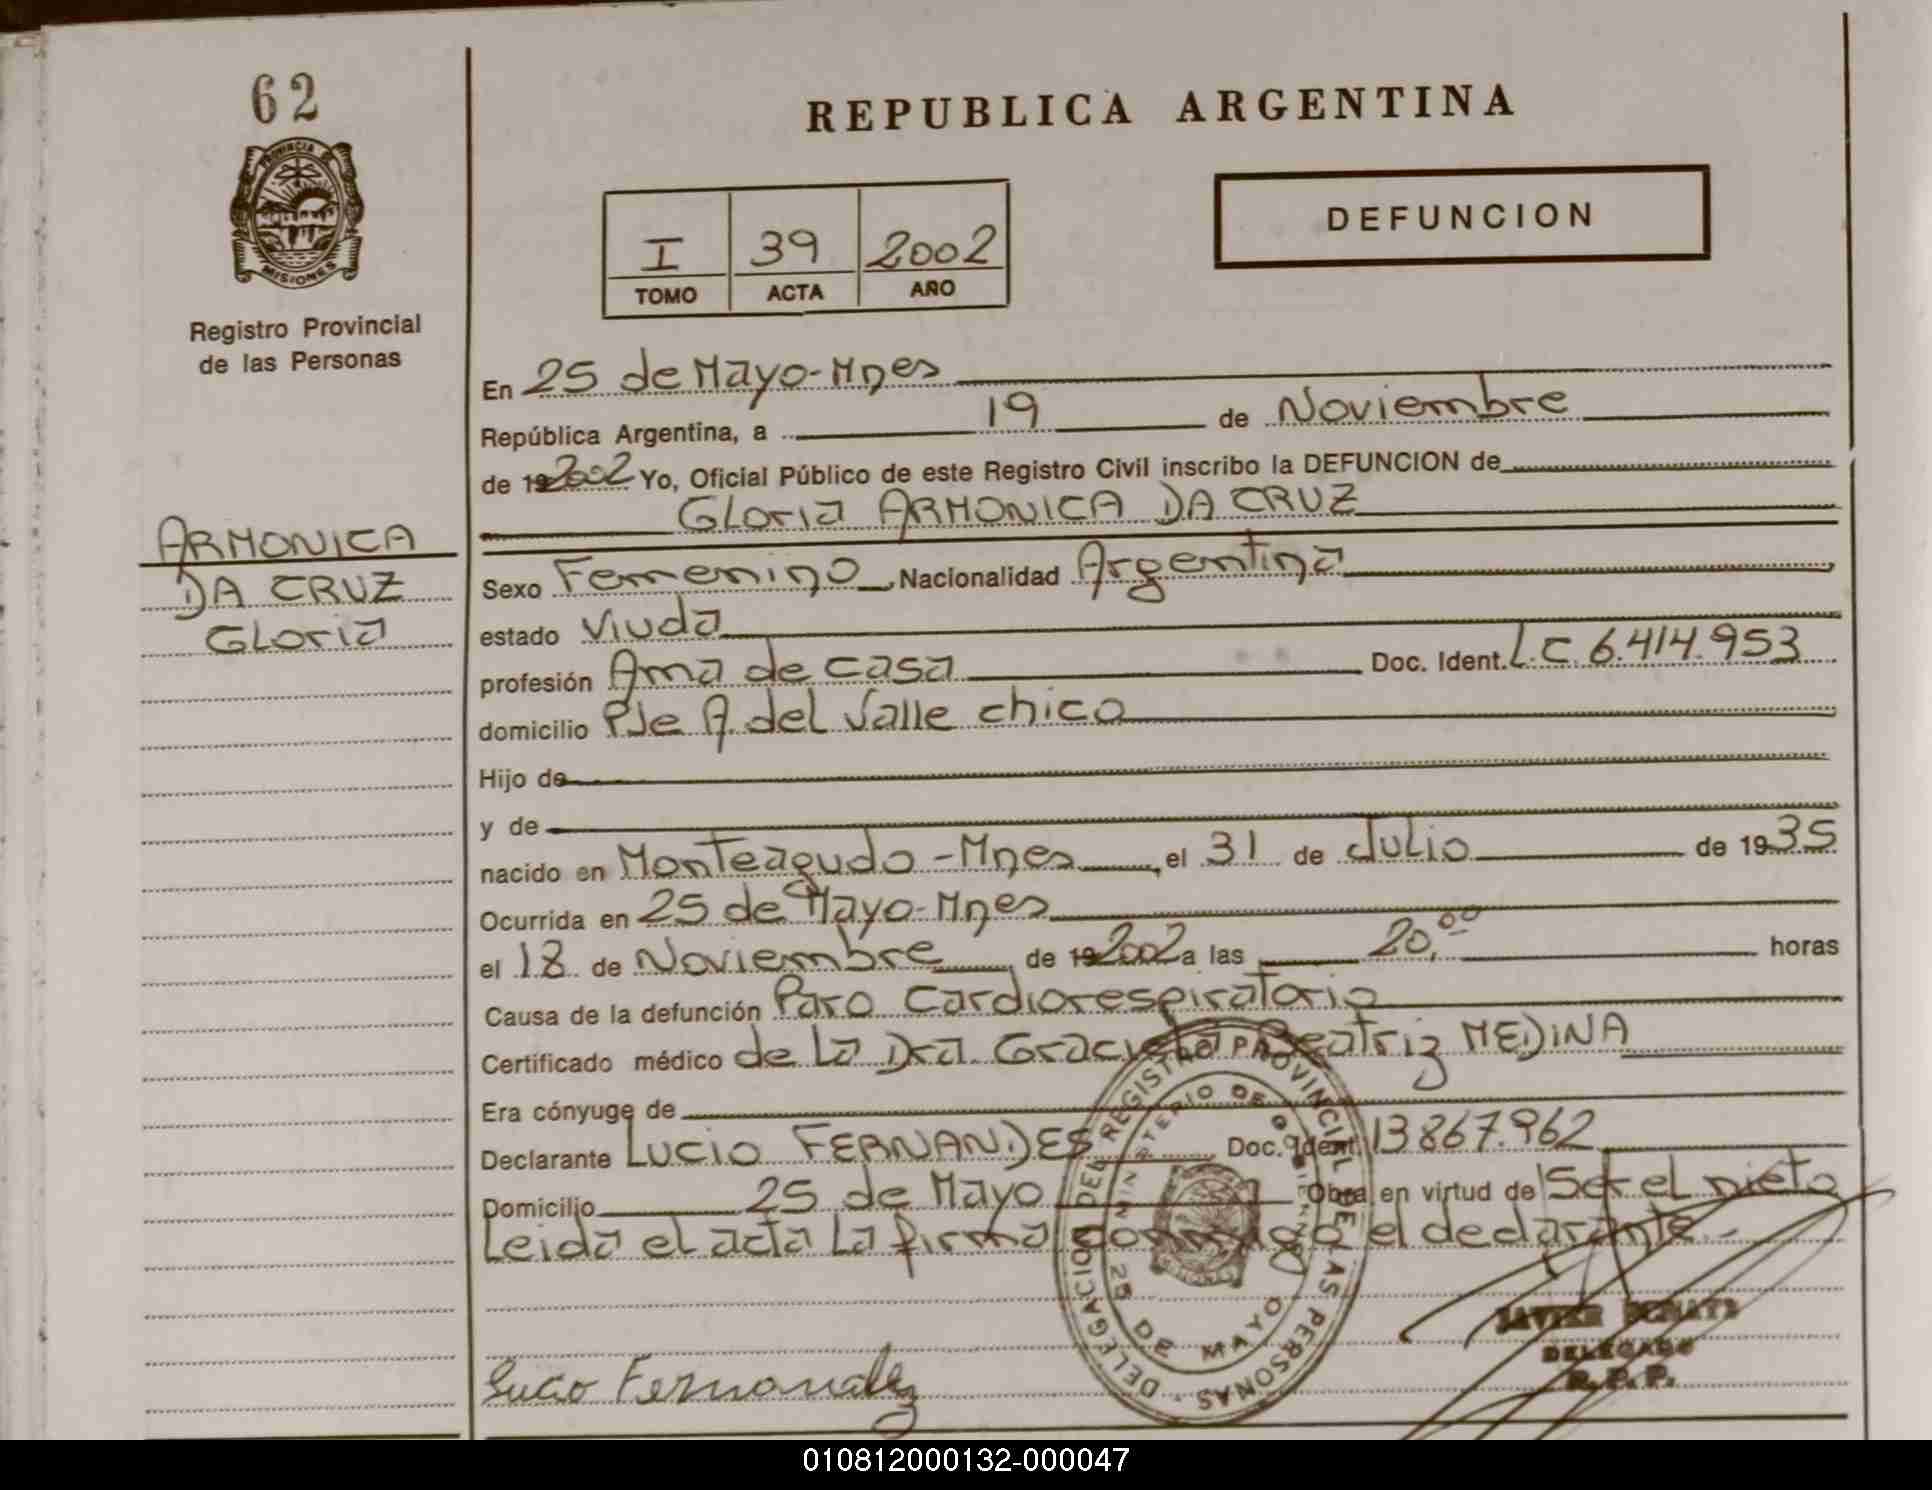 62
PROVINCIA DE
MISIONES
Registro Provincial
de las Personas
ARMONICA
DA CRUZ
GLoria
REPUBLICA ARGENTINA
I 39 2002
TOMO ACTA AÑO
DEFUNCION
En 25 de Mayo-Mnes
República Argentina, a 19 de Noviembre
de 192002 Yo, Oficial Público de este Registro Civil inscribo la DEFUNCION de
GLoria ARMONICA DA CRUZ
Sexo Femenino, Nacionalidad Argentina
estado Viuda
profesión Ama de casa Doc. Ident. L.C. 6.414.953
domicilio PJe A. del Valle chico
Hijo de
y de
nacido en Monteagudo-Mnes, el 31 de Julio de 1935
Ocurrida en 25 de Mayo-Mnes
el 18 de Noviembre de 192002 a las 20,00 horas
Causa de la defunción Paro Cardiorespiratorio
Certificado médico de La Dra. Graciela Beatriz MEDINA
Era cónyuge de
Declarante Lucio FERNANDES Doc. Ident. 13867.962
Domicilio 25 de Mayo Obra en virtud de Ser el nieto
Leida el acta La firma conmigo el declarante.-
DELEGACION DEL REGISTRO PROVINCIAL DE LAS PERSONAS
MINISTERIO DE
25 DE MAYO
Lucio Fernandez
JAVIER
DELEGADO
R.P.P.
010812000132-000047